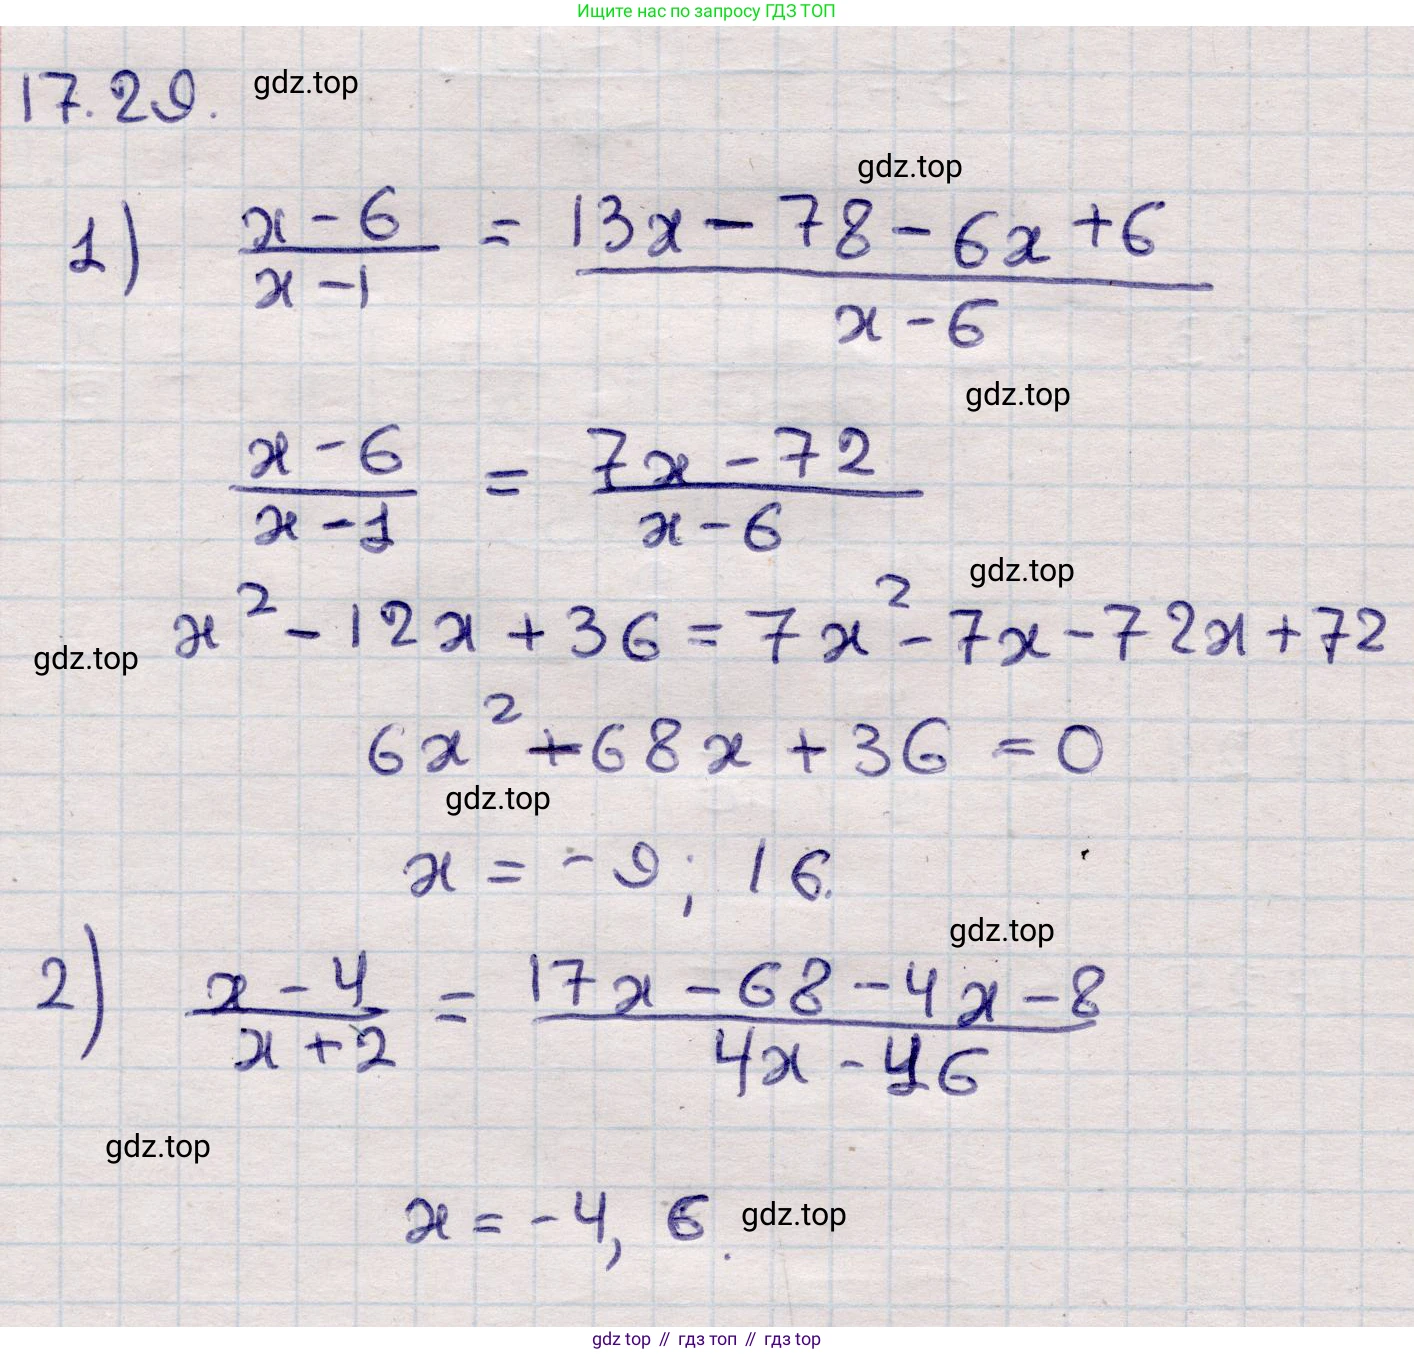 Ищите нас по запросу ГДЗ ТОП
17.29. gdz.top
gdz.top
1) (x - 6)/(x - 1) = (13x - 78 - 6x + 6)/(x - 6)
gdz.top
(x - 6)/(x - 1) = (7x - 72)/(x - 6)
gdz.top
x² - 12x + 36 = 7x² - 7x - 72x + 72
gdz.top
6x² + 68x + 36 = 0
gdz.top
x = -9; 16.
gdz.top
2) (x - 4)/(x + 2) = (17x - 68 - 4x - 8)/(4x - 16)
gdz.top
x = -4, 6. gdz.top
gdz top // гдз топ // гдз top